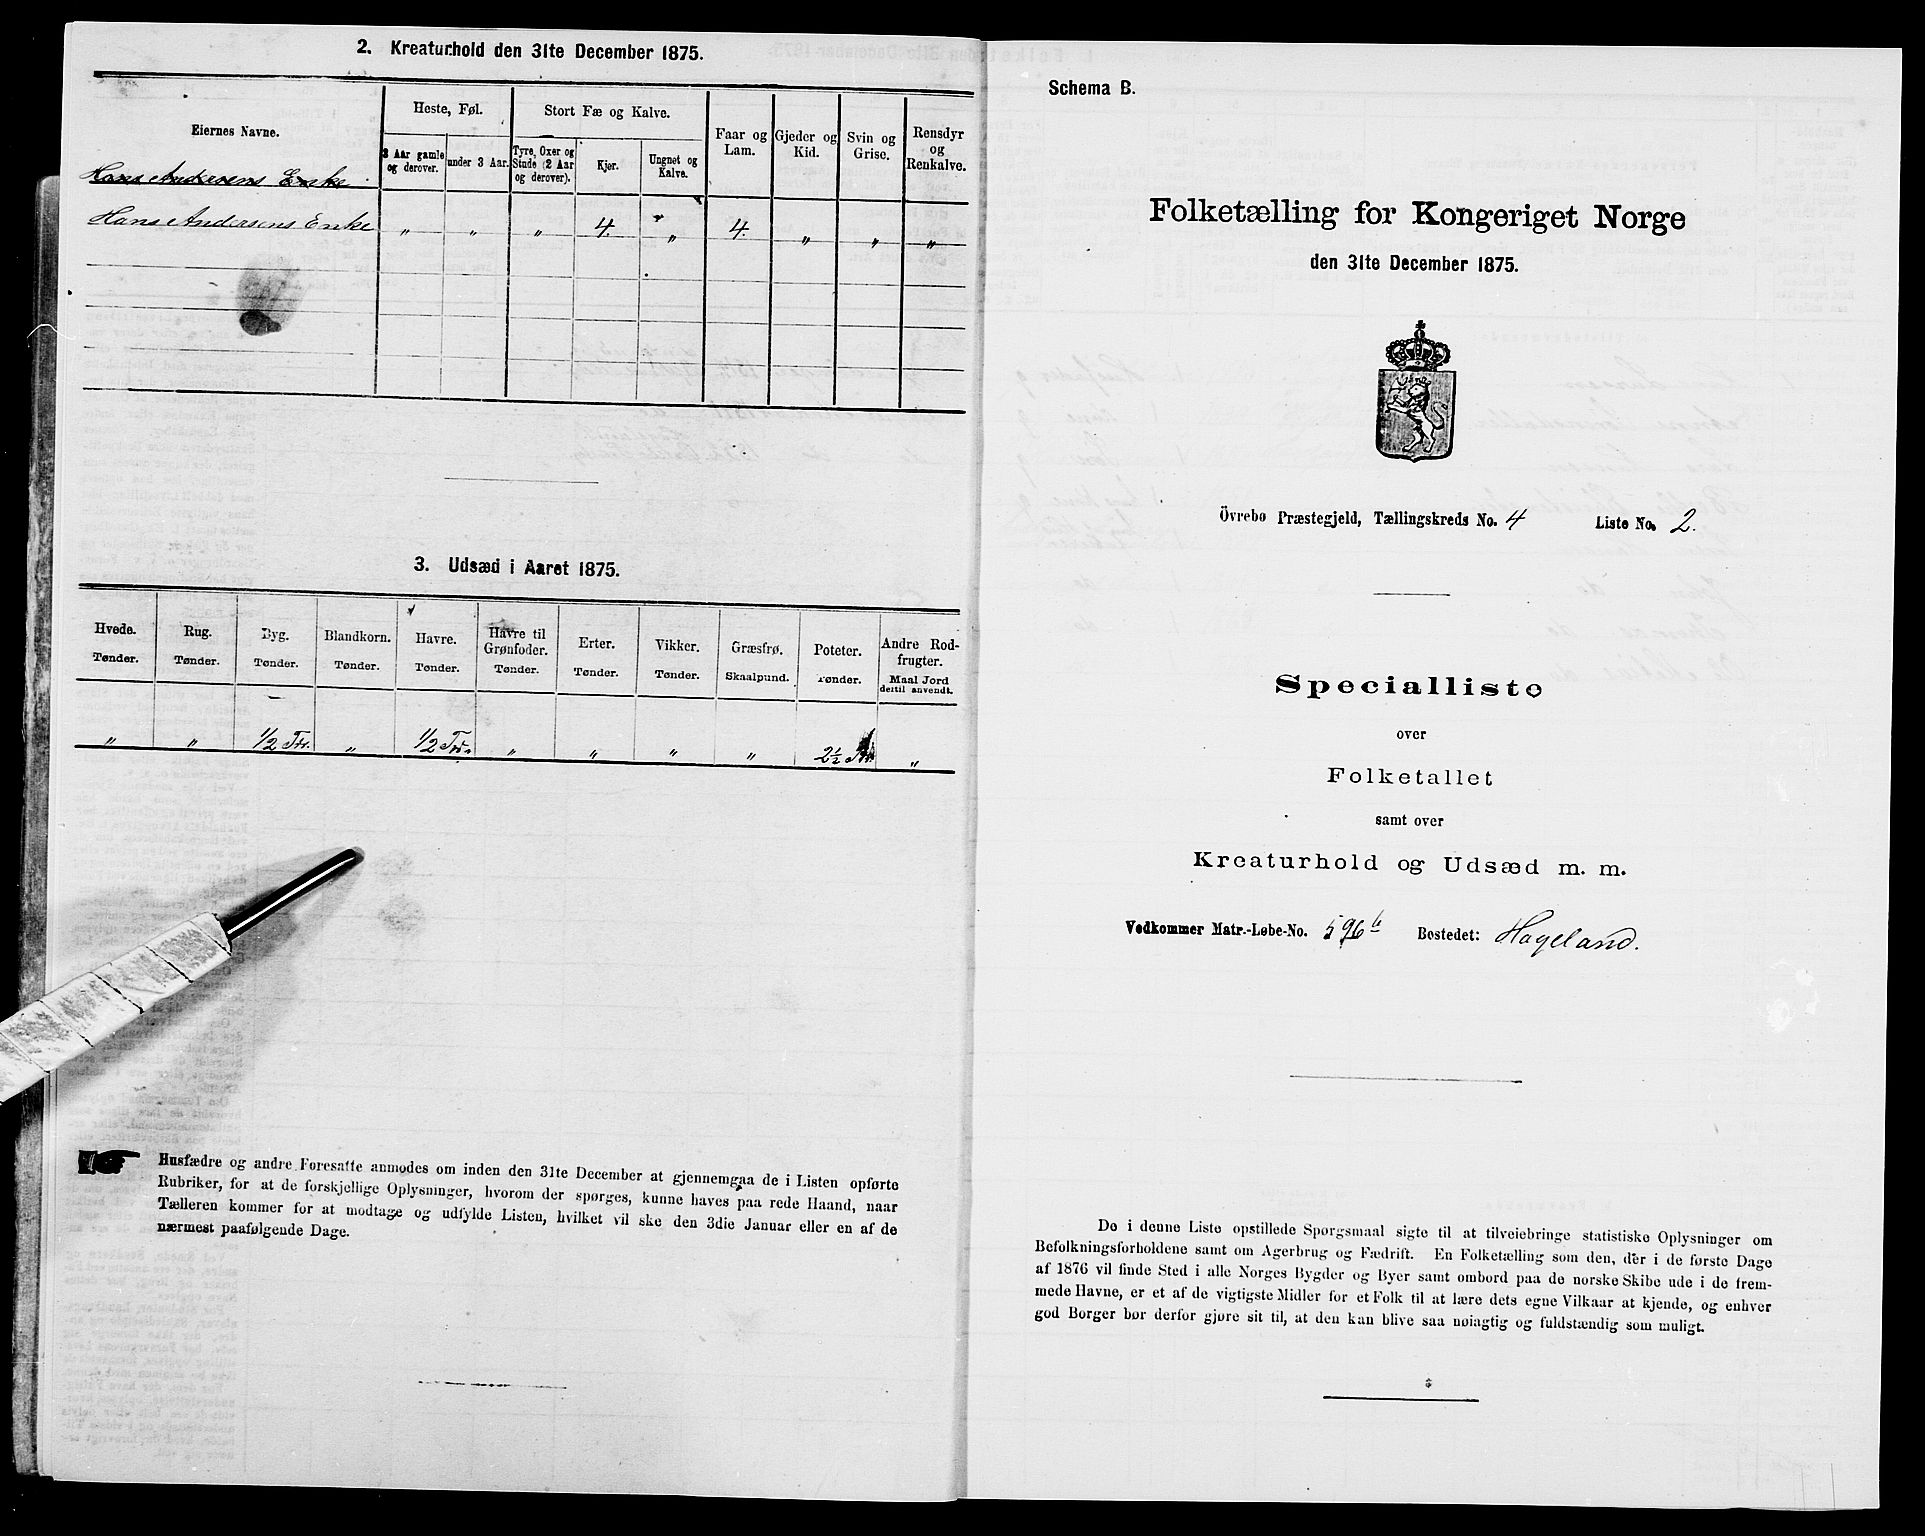 2. Kreaturhold den 31te December 1875.
Eiernes Navne.
Heste, Føl.
Stort Fæ og Kalve.
Faar og Lam.
Gjeder og Kid.
Svin og Grise.
Rensdyr og Renkalve.
3 Aar gamle og derover.
under 3 Aar.
Tyre, Oxer og Stude (2 Aar og derover).
Kjør.
Ungnet og Kalve.
Hans Andersens Enke
Hans Andersens Enke " " " 4. " 4. " " "
3. Udsæd i Aaret 1875.
Hvede. Rug. Byg. Blandkorn. Havre. Havre til Grønfoder. Erter. Vikker. Græsfrø. Poteter. Andre Rodfrugter.
Tønder. Tønder. Tønder. Tønder. Tønder. Tønder. Tønder. Tønder. Skaalpund. Tønder. Maal Jord dertil anvendt.
" " 1/2 Tdr. " 1/2 Tdr. " " " " 2 1/2 Tdr. "
Husfædre og andre Foresatte anmodes om inden den 31te December at gjennemgaa de i Listen opførte
Rubriker, for at de forskjellige Oplysninger, hvorom der spørges, kunne haves paa rede Haand, naar
Tælleren kommer for at modtage og udfylde Listen, hvilket vil ske den 3die Januar eller en af de
nærmest paafølgende Dage.
Schema B.
Folketælling for Kongeriget Norge
den 31te December 1875.
Övrebø Præstegjeld, Tællingskreds No. 4 Liste No. 2.
Specialliste
over
Folketallet
samt over
Kreaturhold og Udsæd m. m.
Vedkommer Matr.-Løbe-No. 596b Bostedet: Hageland.
De i denne Liste opstillede Spørgsmaal sigte til at tilveiebringe statistiske Oplysninger om
Befolkningsforholdene samt om Agerbrug og Fædrift. En Folketælling som den, der i de første Dage
af 1876 vil finde Sted i alle Norges Bygder og Byer samt ombord paa de norske Skibe ude i de frem-
mede Havne, er et af de vigtigste Midler for et Folk til at lære dets egne Vilkaar at kjende, og enhver
god Borger bør derfor gjøre sit til, at den kan blive saa nøiagtig og fuldstændig som muligt.